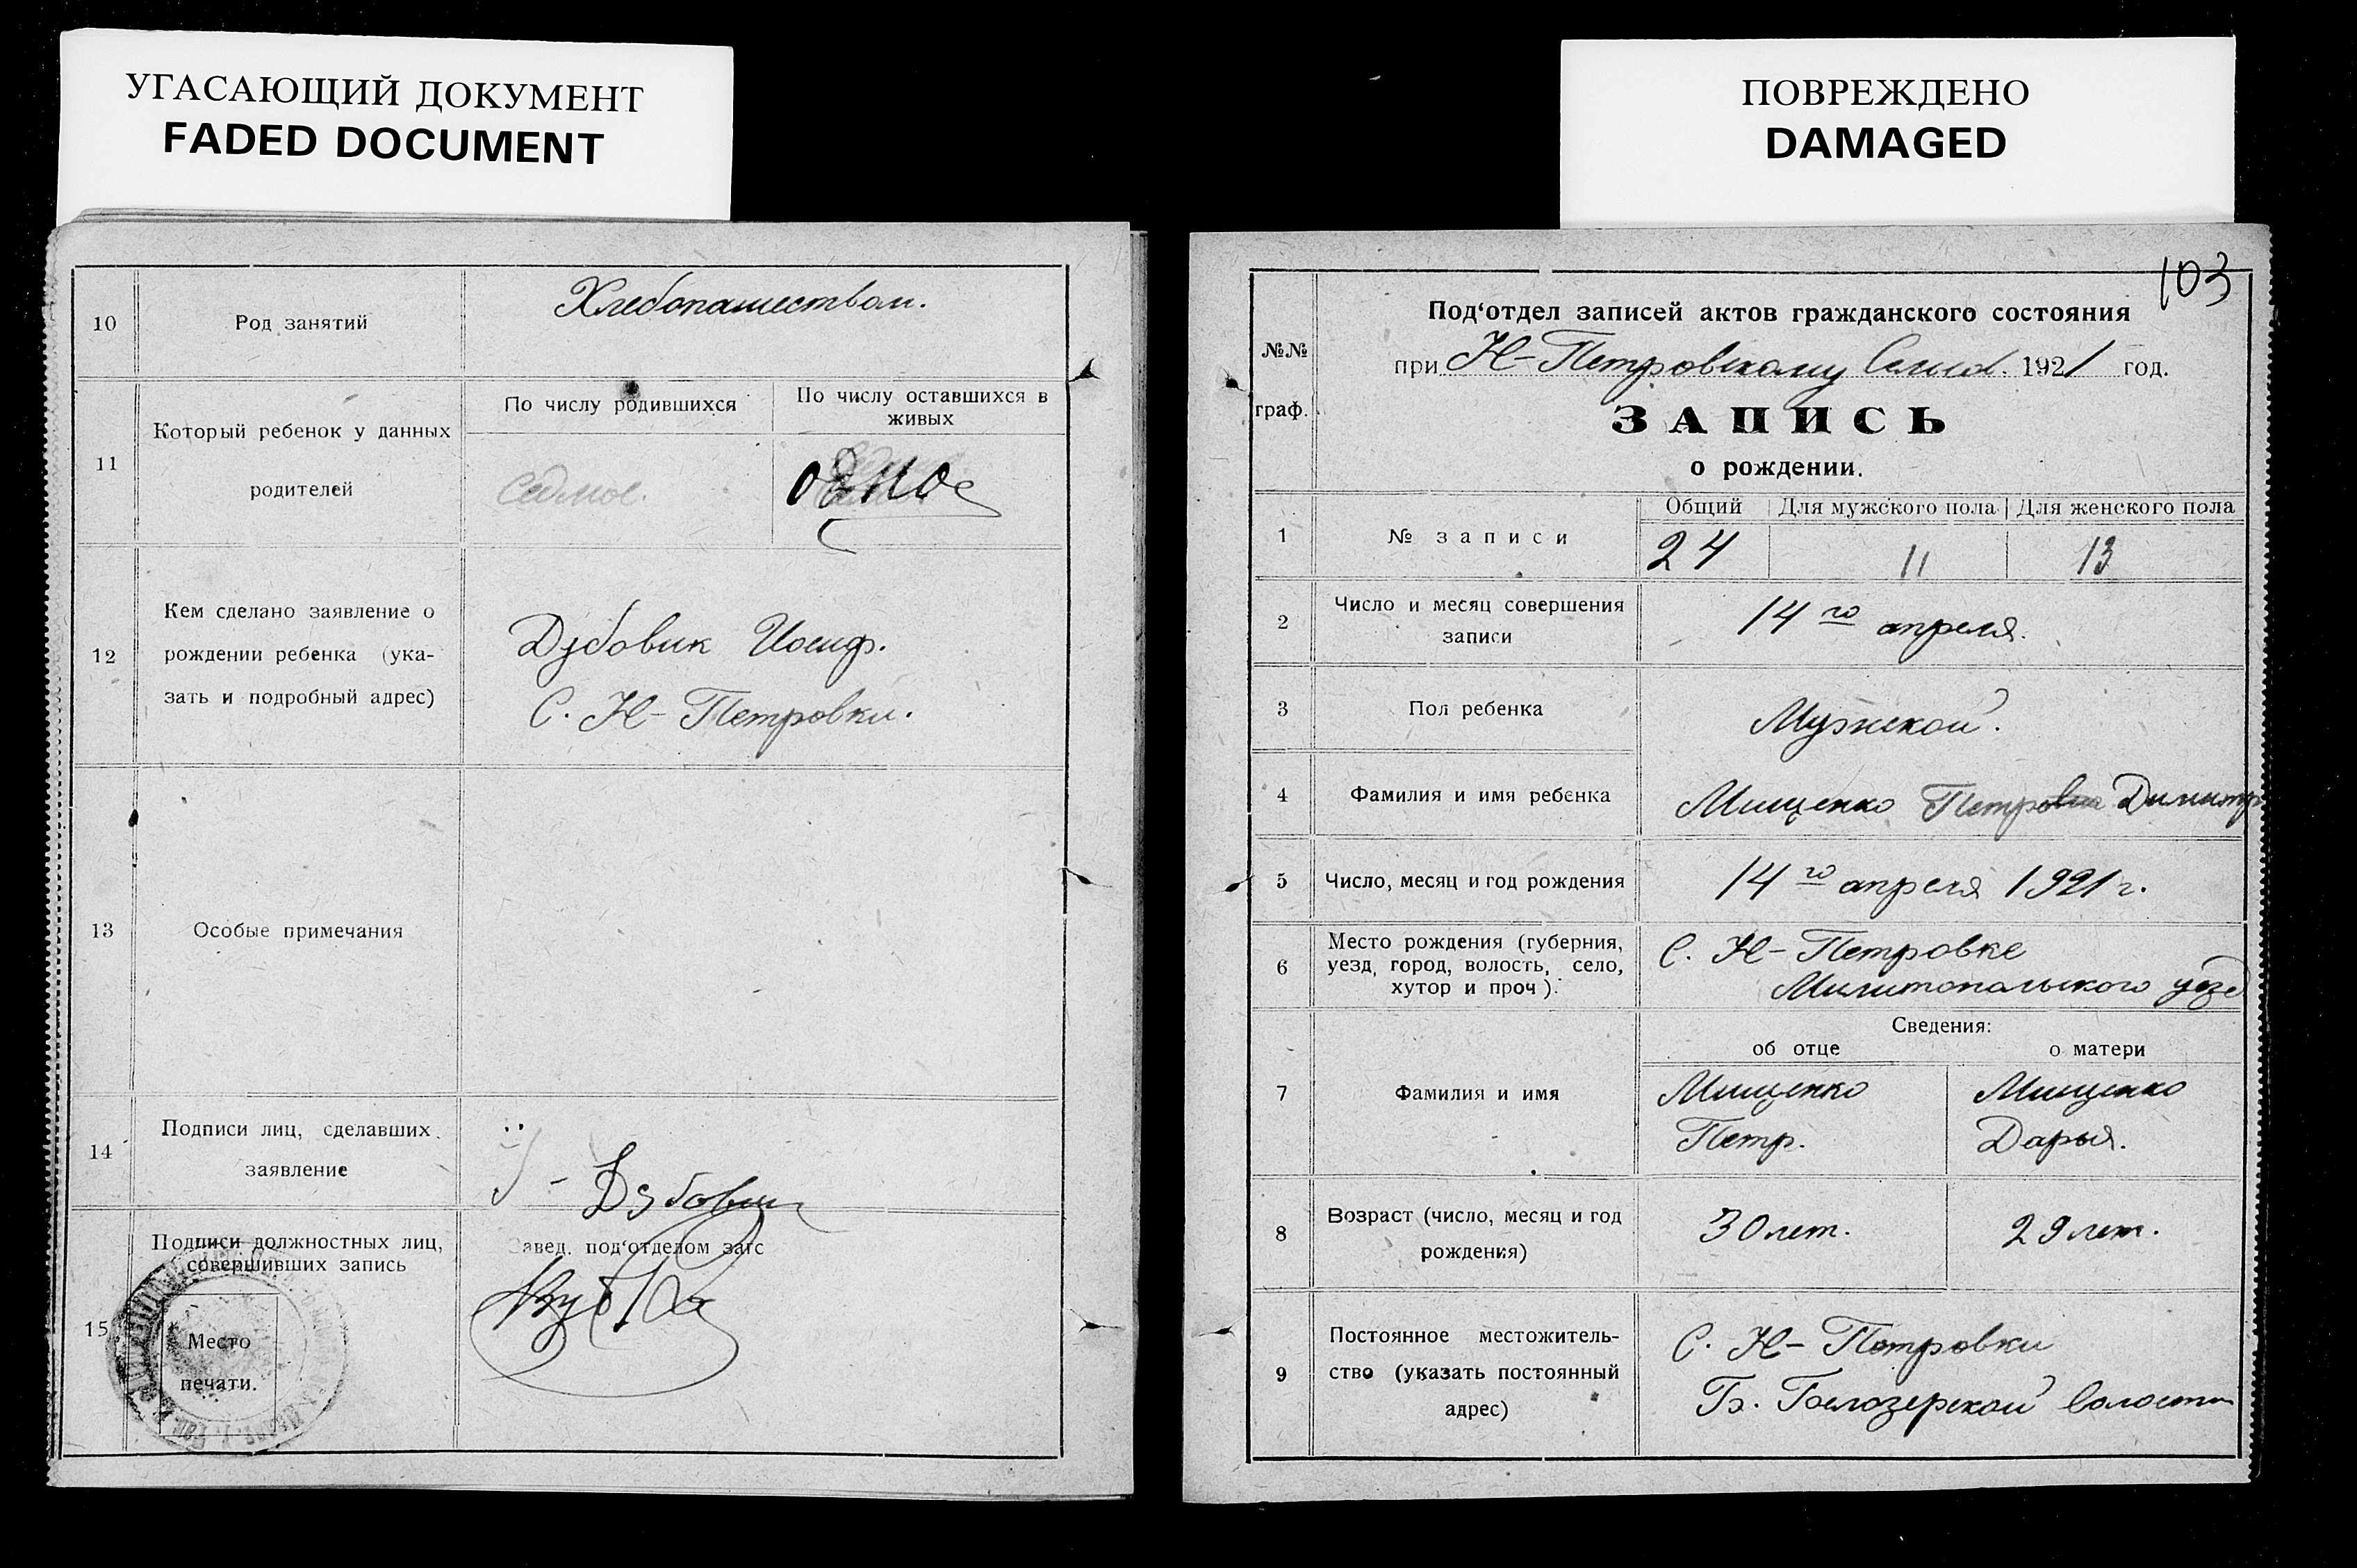 УГАСАЮЩИЙ ДОКУМЕНТ
FADED DOCUMENT
10
Род занятий
Хлебопашеством.
11
Который ребенок у данных
родителей
По числу родившихся
По числу оставшихся в
живых
Седмое.
одное
12
Кем сделано заявление о
рождении ребенка (ука-
зать и подробный адрес)
Дубовик Иосиф.
С. Н-Петровки.
13
Особые примечания
14
Подписи лиц, сделавших
заявление
Дубовик
15
Подписи должностных лиц,
совершивших запись
Завед. под‘отделом загс
Место
печати.
ПОВРЕЖДЕНО
DAMAGED
103
№№
граф.
Под‘отдел записей актов гражданского состояния
при Н-Петровскому 1921 год.
ЗАПИСЬ
о рождении.
1
№ записи
Общий
Для мужского пола
Для женского пола
24
11
13
2
Число и месяц совершения
записи
14го апреля.
3
Пол ребенка
Мужской.
4
Фамилия и имя ребенка
Мищенко Димитр
5
Число, месяц и год рождения
14го апреля 1921 г.
6
Место рождения (губерния,
уезд, город, волость, село,
хутор и проч).
С. Н-Петровке
Милитопольского уезд
Сведения:
об отце
о матери
7
Фамилия и имя
Мищенко
Петр.
Мищенко
Дарья.
8
Возраст (число, месяц и год
рождения)
30 лет.
29 лет.
9
Постоянное местожитель-
ство (указать постоянный
адрес)
С. Н-Петровки
Б. Белозерской волости